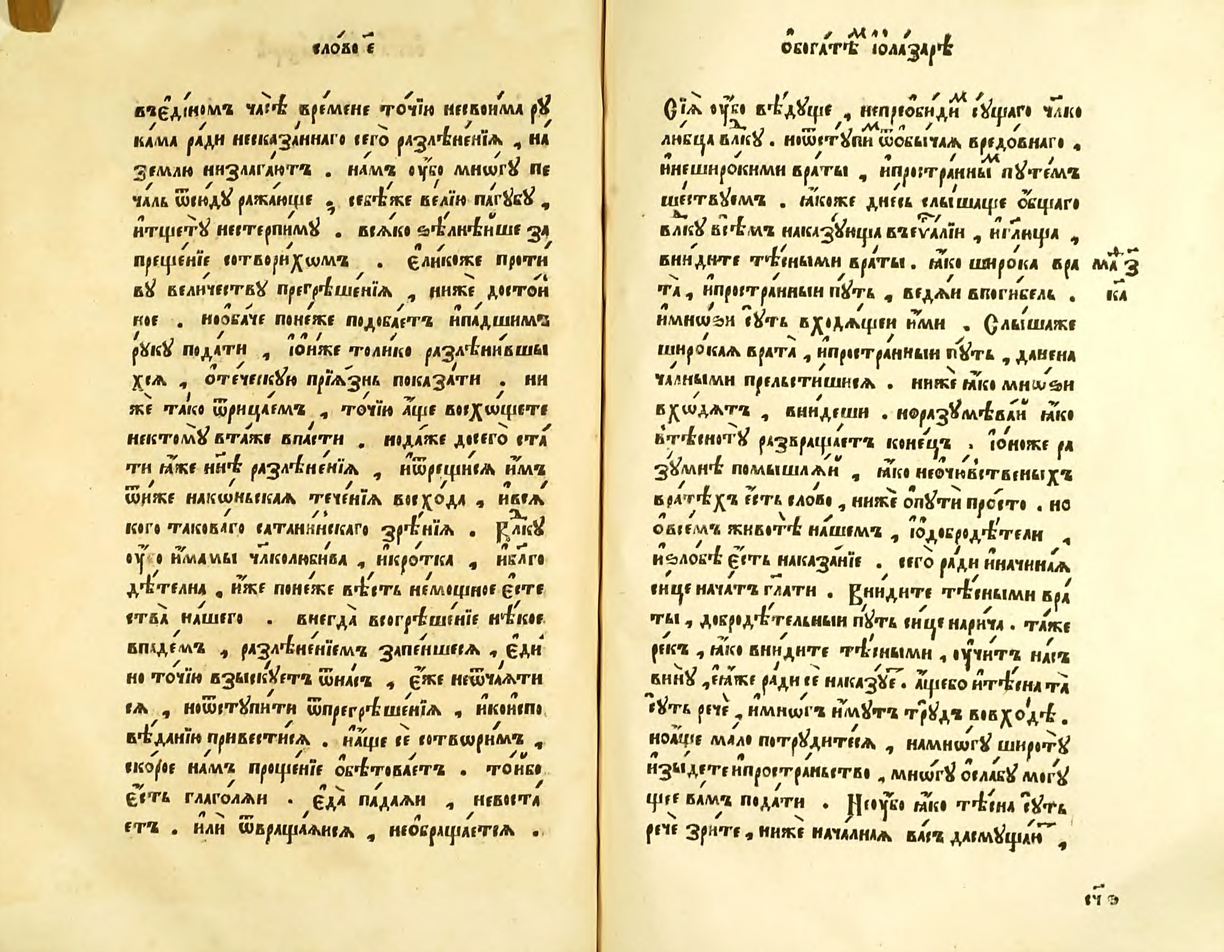 сло́во є҃
въе҆ди́номъ ча́сѣ вре́мене то́чїю несвои́ма рꙋ
ка́ма ра́ди несказа́ннаго сего̀ разлѣне́нїѧ , на
зе́млю низлага́ютъ . на́мъ ᲂу҆́бо мно́гꙋ пе
ча́ль ѿвсю́дꙋ ража́юще , себѣ́же ве́лїю па́гꙋбꙋ ,
и҆тщетꙋ̀ нестерпи́мꙋ . всѧ́ко ѕѣлнѣ́йше за
преще́нїе сотвори́хомъ . є҆ли́коже проти
вꙋ̀ вели́чествꙋ прегрѣше́нїѧ , нижѐ досто́й
ное . но҆ба́че поне́же подоба́етъ и҆па́дшимъ
рꙋ́кꙋ пода́ти , і҆о҆ни́же толи́ко разлѣни́вшы
хсѧ , ѻ҆те́ческꙋю прїѧ́знь показа́ти . ни
жѐ та́ко ѿрица́емъ , то́чїю а҆́ще восхо́щете
нектомꙋ̀ вта́же впа́сти . нода́же досего̀ ста́
ти ꙗ҆́же нн҃ѣ разлѣне́нїѧ , и҆ѿрещи́сѧ и҆́мъ
ѿни́же нако́ньскаѧ тече́нїѧ восхо́да , и҆всѧ́
кого такова́го сатани́нскаго зрѣ́нїѧ . Влⷣкꙋ
ᲂу҆́бо и҆́мамы чл҃колюби́ва , и҆кро́тка , и҆бл҃го
дѣ́телна , и҆́же поне́же вѣ́сть немощно́е є҆сте
ства̀ на́шего . внегда̀ всогрѣше́нїе нѣ́кое
впаде́мъ , разлѣне́нїемъ запе́ншесѧ , є҆ди́
но то́чїю взы́скꙋетъ ѿна́съ , є҆́же неѿча́ѧти
сѧ , но҆ѿстꙋпи́ти ѿпрегрѣше́нїѧ , и҆коиспо
вѣ́данїю привести́сѧ . и҆а҆́ще сѐ сотвори́мъ ,
ско́рое на́мъ проще́нїе ѻ҆бѣтова́етъ . то́йбо
є҆́сть глаго́лѧй . є҆да̀ па́даѧй , невоста
етъ . и҆лѝ ѿвраща́ѧйсѧ , необраща́етсѧ .
ѻ҆бога́тѣмъ і҆ола́зарѣ
Сїѧ̑ ᲂу҆́бо вѣ́дꙋще , непреоби́димъ сꙋ́щаго чл҃ко
лю́бца влⷣкꙋ . но҆ѿстꙋпи́мъ ѿѻ҆бы́чаѧ вредо́внаго ,
и҆неширо́кими враты̀ , и҆простра́ннымъ пꙋте́мъ
ше́ствꙋемъ . ꙗ҆́коже дне́сь слы́шаще ѻ҆́бщаго
влⷣкꙋ всѣ́мъ наказꙋ́юща въеѵⷢ҇а́лїи , и҆гл҃юща ,
вни́дите тѣ́сными враты̀ . ꙗ҆́ко широ́ка вра
та̀ , и҆простра́нный пꙋ́ть , ведѧ́й впоги́бель .
и҆мно́ѕи сꙋ́ть входѧ́щеи и҆́ми . Слы́шаже
широ́каѧ врата̀ , и҆простра́нный пꙋ́ть , данена
ча́лными прельсти́шисѧ . нижѐ ꙗ҆́ко мно́ѕи
вхо́дѧтъ , вни́деши . но҆разꙋмѣва́й ꙗ҆́ко
втѣснотꙋ̀ развраща́етъ коне́цъ . і҆о҆но́же ра
зꙋ́мнѣ помышлѧ́й , ꙗ҆́ко неочю́вственыхъ
вратѣ́хъ є҆́сть сло́во , нижѐ ѻ҆пꙋтѝ про́сто . но
ѻ҆все́мъ животѣ̀ на́шемъ , і҆одобродѣ́тели ,
и҆ѕло́бѣ є҆́сть наказа́нїе . сего̀ ра́ди и҆начина́ѧ
си́це нача́тъ гл҃ати . Вни́дите тѣ́сными вра
ты̀ , добродѣ́тельный пꙋ́ть си́це нарича́ . та́же
ре́къ , ꙗ҆́ко вни́дите тѣ́сными , ᲂу҆́читъ на́съ
винꙋ̀ , еѧ҆́же ра́ди сѐ наказꙋ́е . а҆́щебо и҆тѣ́сна та̀
сꙋ́ть речѐ , и҆мно́гъ и҆́мꙋтъ трꙋ́дъ вовхо́дѣ .
ноа҆́ще ма́ло потрꙋди́тесѧ , намно́гꙋ широтꙋ̀
и҆зы́дете и҆простра́ньство , мно́гꙋ ѻ҆сла́бꙋ могꙋ́
щее ва́мъ пода́ти . Неᲂу҆́бо ꙗ҆́ко тѣ́сна сꙋ́ть
речѐ зри́те , нижѐ нача́лнаѧ ва́съ дасмꙋща́ю ,
маⷴ҇ з҃
ка